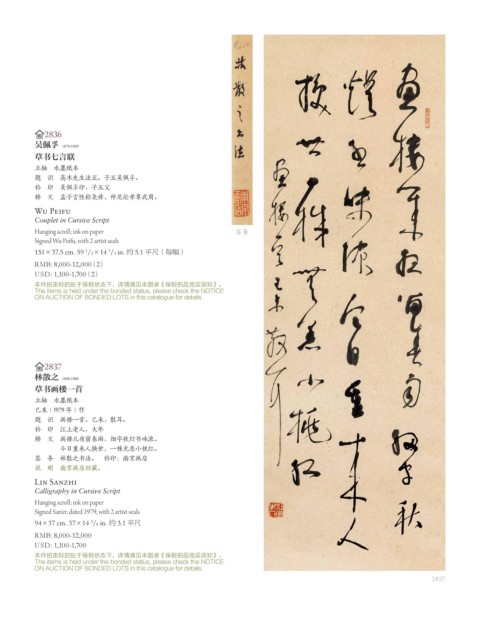 2836
吴佩孚 1874-1939
草书七言联
立轴 水墨纸本
题 识 高木先生法正。子玉吴佩孚。
钤 印 吴佩孚印、子玉父
释 文 孟子言性称尧舜，仲尼论孝事武周。
WU PEIFU
Couplet in Cursive Script
Hanging scroll; ink on paper
Signed Wu Peifu, with 2 artist seals
RMB: 8,000-12,000 (2)
USD: 1,100-1,700 (2)
本件拍卖标的处于保税状态下，详情请见本图录《保税拍品竞买须知》。
The items is held under the bonded status, please check the NOTICE
ON AUCTION OF BONDED LOTS in this catalogue for details.
2837
林散之 1898-1989
草书画楼一首
立轴 水墨纸本
己未（1979 年）作
题 识 画楼一首。己未，散耳。
钤 印 江上老人、大年
释 文 画楼几夜留春雨，细字秋灯书味浓。
今日重来人换世，一株无恙小桃红。
签 条 林散之书法。 钤印：南京画店
说 明 南京画店旧藏。
LIN SANZHI
Calligraphy in Cursive Script
Hanging scroll; ink on paper
Signed Saner, dated 1979, with 2 artist seals
94 × 37 cm. 37 × 14 5/8 in. 约 3.1 平尺
RMB: 8,000-12,000
USD: 1,100-1,700
本件拍卖标的处于保税状态下，详情请见本图录《保税拍品竞买须知》。
The items is held under the bonded status, please check the NOTICE
ON AUCTION OF BONDED LOTS in this catalogue for details.
林散之书法
签条
2837